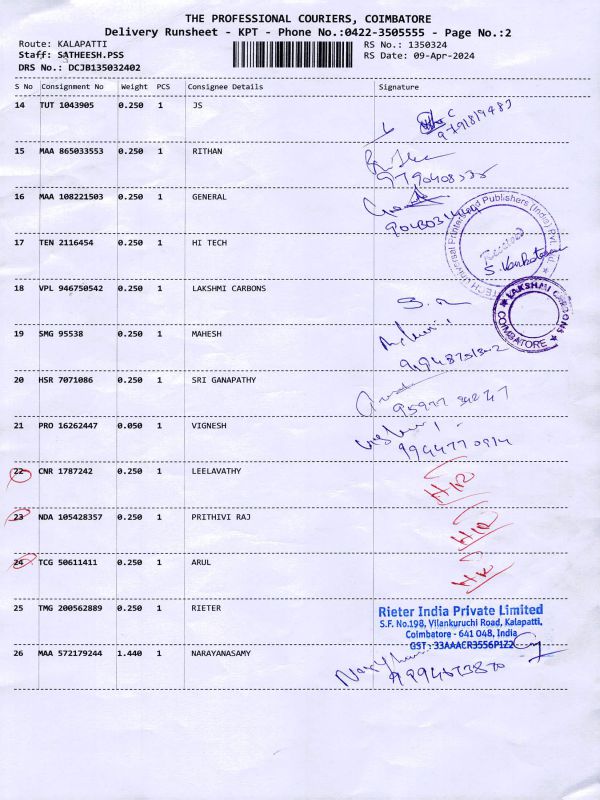 THE PROFESSIONAL COURIERS, COIMBATORE
Delivery Runsheet - KPT - Phone No.:0422-3505555 - Page No.:2
Route: KALAPATTI RS No.: 1350324
Staff: SATHEESH.PSS RS Date: 09-Apr-2024
DRS No.: DCJB135032402
S No Consignment No Weight PCS Consignee Details Signature
14 TUT 1043905 0.250 1 JS
15 MAA 865033553 0.250 1 RITHAN
16 MAA 108221503 0.250 1 GENERAL
17 TEN 2116454 0.250 1 HI TECH
Received
18 VPL 946750542 0.250 1 LAKSHMI CARBONS
LAKSHMI CARBONS
COIMBATORE
19 SMG 95538 0.250 1 MAHESH
20 HSR 7071086 0.250 1 SRI GANAPATHY
21 PRO 16262447 0.050 1 VIGNESH
22 CNR 1787242 0.250 1 LEELAVATHY
23 NDA 105428357 0.250 1 PRITHIVI RAJ
24 TCG 50611411 0.250 1 ARUL
25 TMG 200562889 0.250 1 RIETER
Rieter India Private Limited
S.F. No.198, Vilankuruchi Road, Kalapatti,
Coimbatore - 641 048, India
GST : 33AAACR3556P1Z2
26 MAA 572179244 1.440 1 NARAYANASAMY